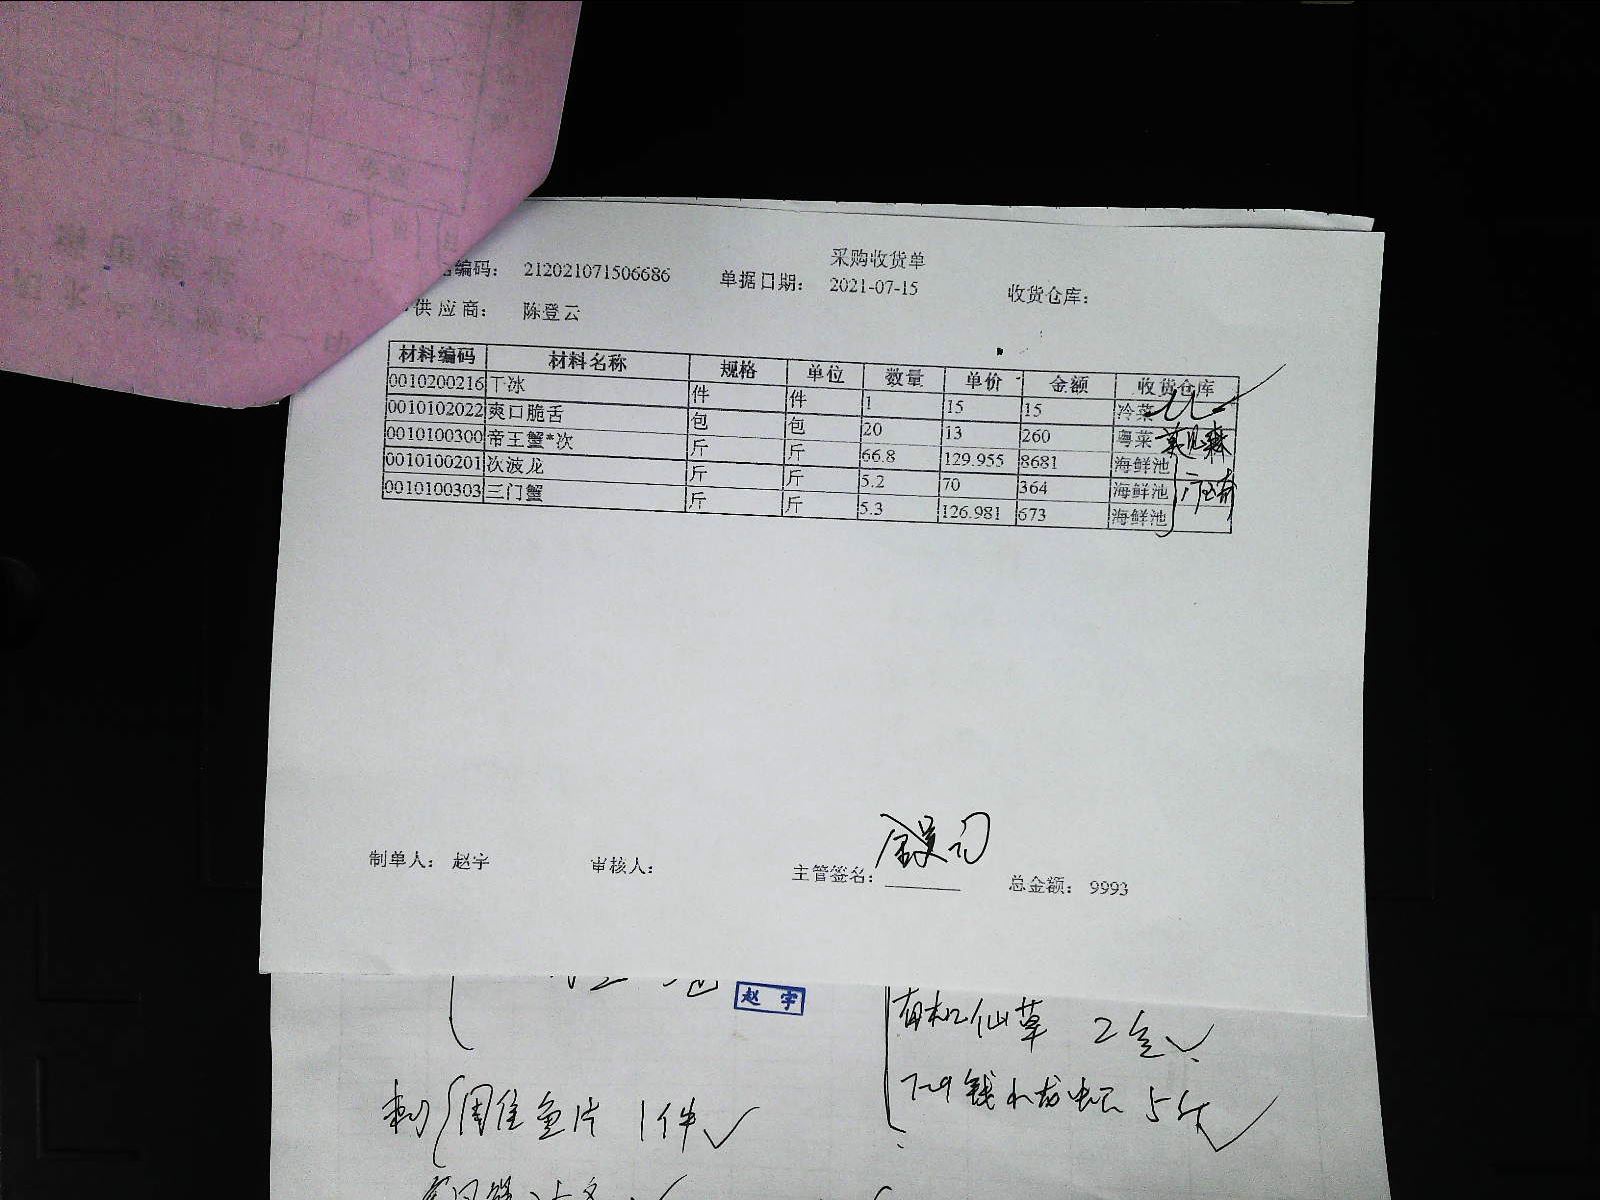 采购收货单
编码： 212021071506686 单据日期： 2021-07-15 收货仓库：
供应商： 陈登云
材料编码 材料名称 规格 单位 数量 单价 金额 收货仓库
0010200216 干冰 件 件 1 15 15 冷菜
0010102022 爽口脆舌 包 包 20 13 260 粤菜
0010100300 帝王蟹*次 斤 斤 66.8 129.955 8681 海鲜池
0010100201 次波龙 斤 斤 5.2 70 364 海鲜池
0010100303 三门蟹 斤 斤 5.3 126.981 673 海鲜池
制单人： 赵宇 审核人： 主管签名： 总金额： 9993
赵宇
有机仙草 2包
7-9钱 5斤
刺 鱼片 1件